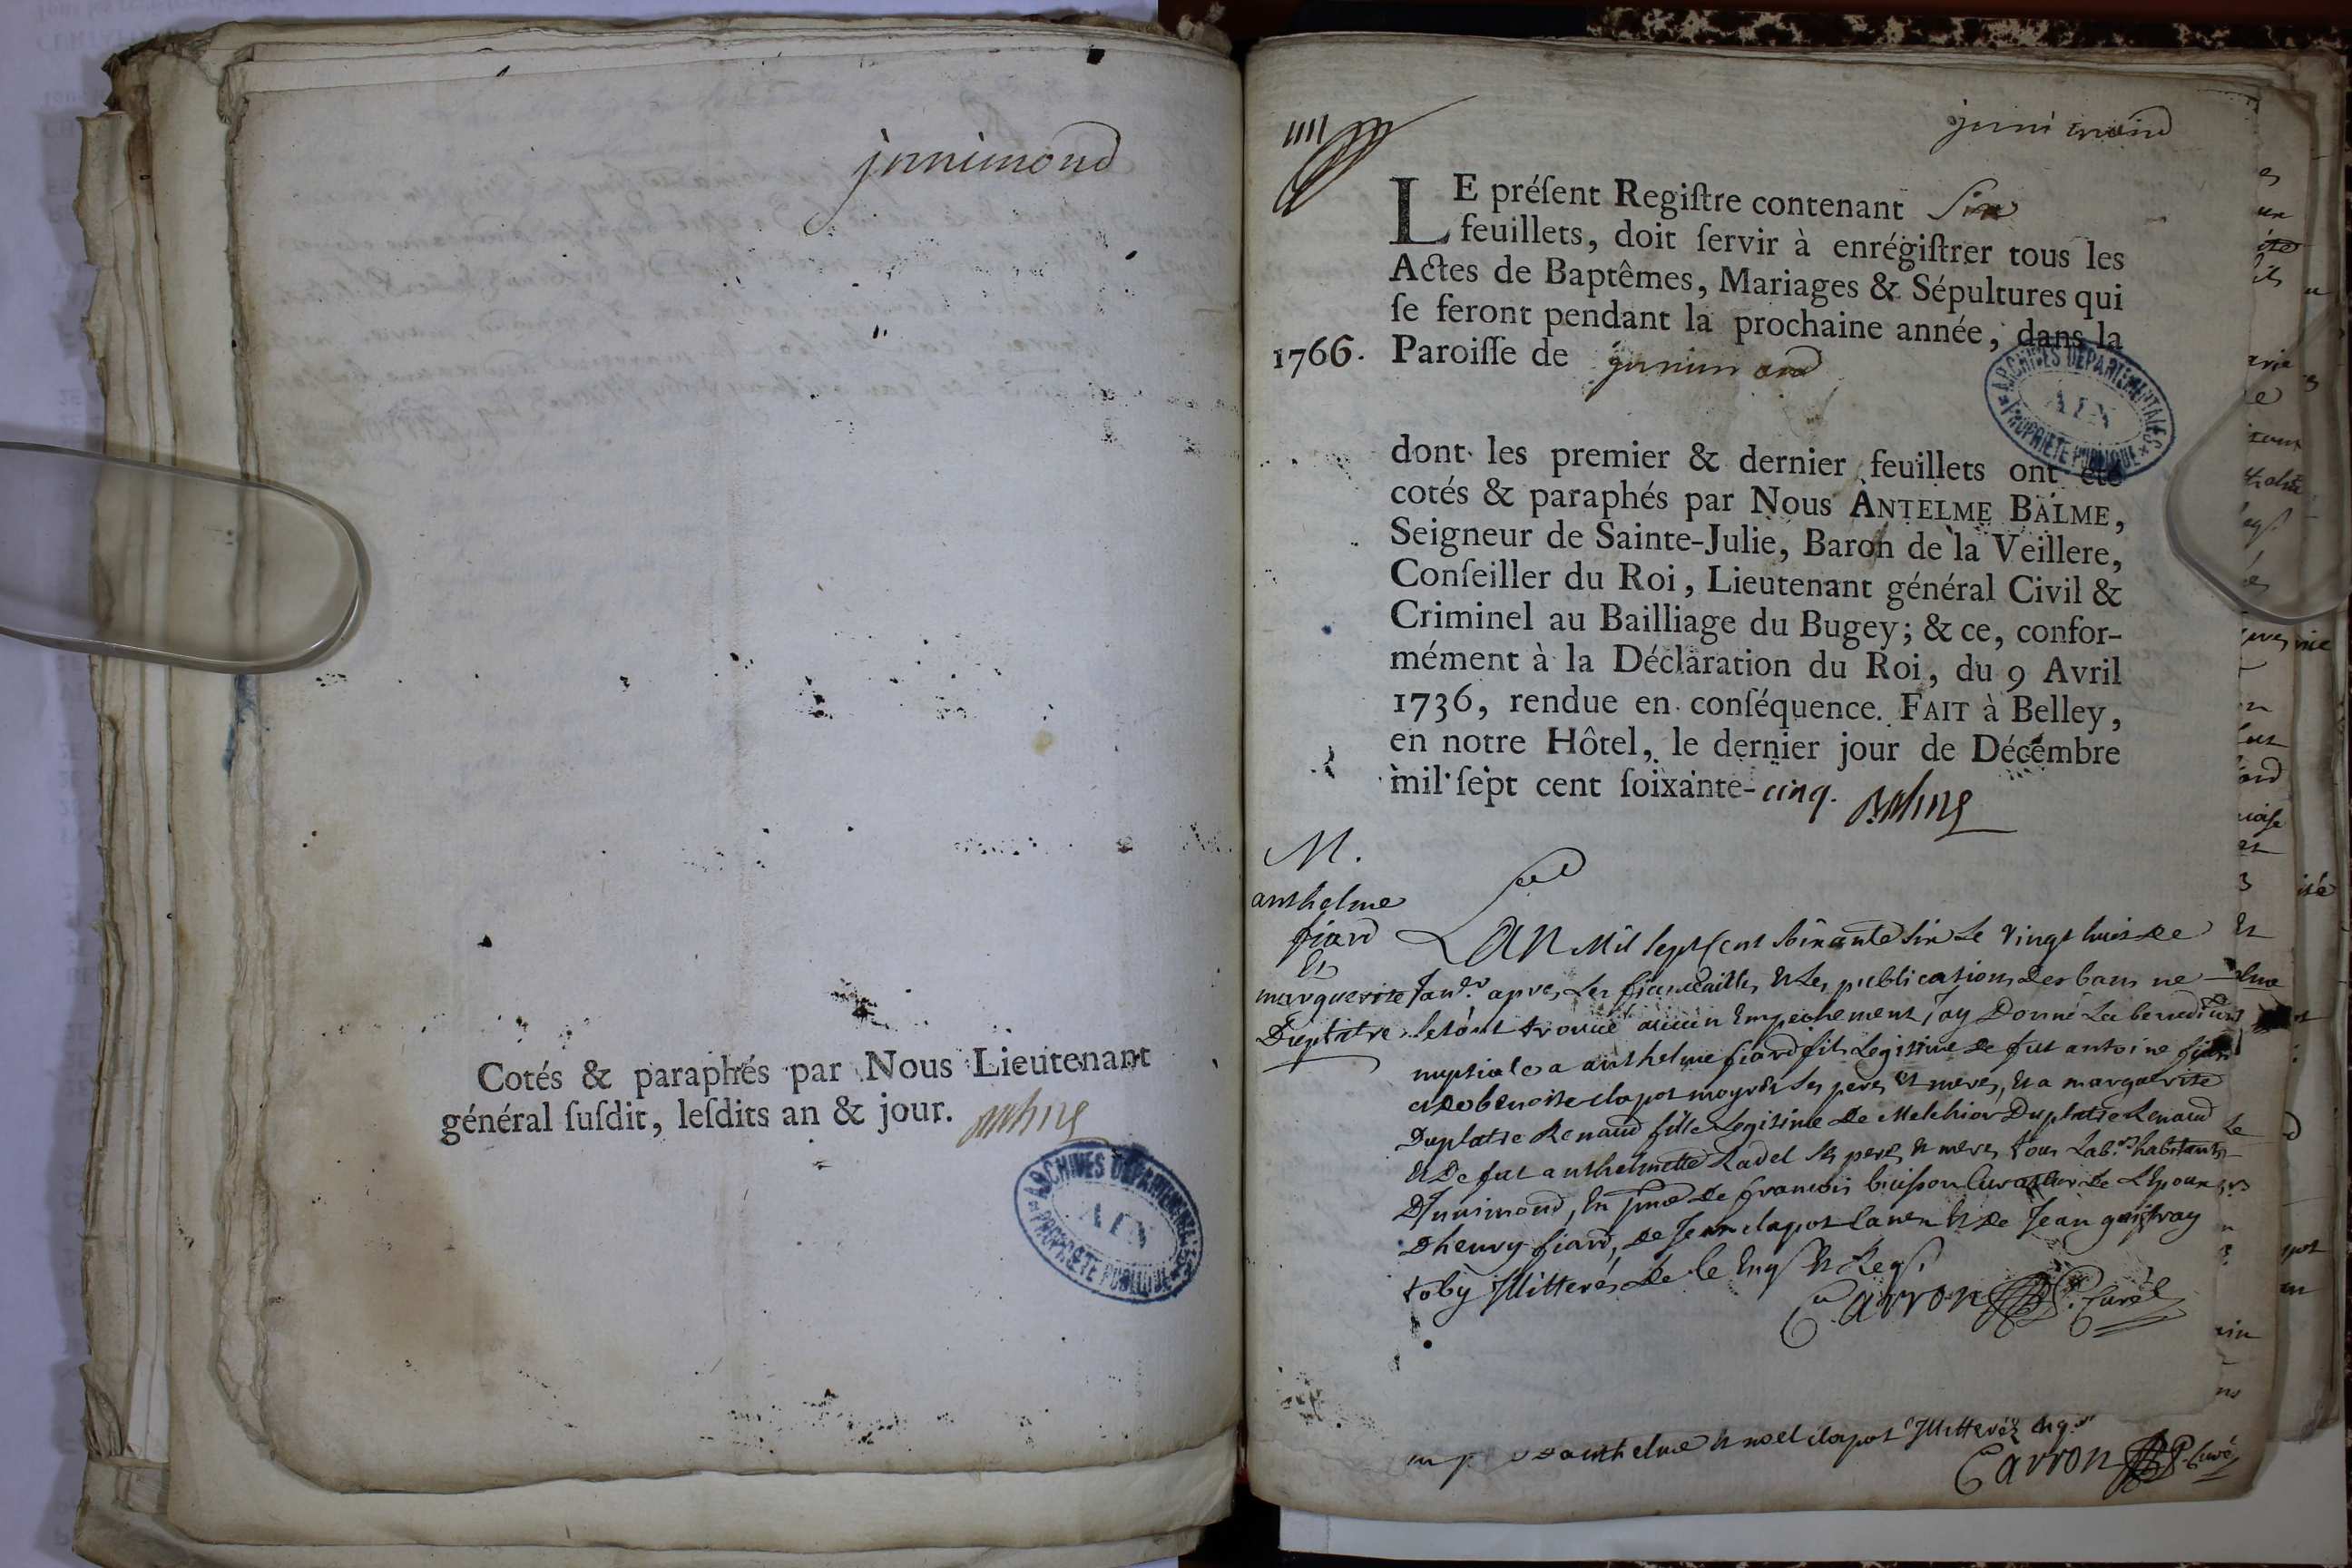 jnnimond
Cotés & paraphés par Nous Lieutenant
général ſuſdit, leſdits an & jour. Balme
ARCHIVES DEPARTEMENTALES
AIN
PROPRIETE PUBLIQUE
jnnimond
LE préſent Regiſtre contenant Six
feuillets, doit ſervir à enrégiſtrer tous les
Actes de Baptêmes, Mariages & Sépultures qui
ſe feront pendant la prochaine année, dans la
1766. Paroiſſe de jnnimond
ARCHIVES DEPARTEMENTALES
AIN
PROPRIETE PUBLIQUE
dont les premier & dernier feuillets ont été
cotés & paraphés par Nous ANTELME BALME,
Seigneur de Sainte-Julie, Baron de la Veillere,
Conſeiller du Roi, Lieutenant général Civil &
Criminel au Bailliage du Bugey; & ce, confor-
mément à la Déclaration du Roi, du 9 Avril
1736, rendue en conſéquence. FAIT à Belley,
en notre Hôtel, le dernier jour de Décembre
mil ſept cent ſoixante-cinq. Balme
M.
anthelme
fiard
Et
marguerite
Duplatre
LAN Mil Sept Cent Soixante Six Le vingt huit de
Janer. apres Les fiancailles Et Les publications des bans ne
setant trouvé aucun Empechement, Jay Donné La benediction
nuptiale a anthelme fiard fils Legitime de fut antoine fiard
et de benoite clapot moyret Ses peres et meres, Et a marguerite
Duplatre Renaud fille Legitime de Melchior Duplatre Renaud
Et De fut anthelmette Ladel Ses peres et meres tous Labrs. habitants
DJnnimond, En pnce de francois buisson Curateur de Lepoux
Dhenry fiard, de Jean clapot Et de Jean
toby Jllitterés de Ce Enq Et Req.
Carron P. Curé
anthelme et noel clapot Jllitteréz Enq.
Carron P. Curé